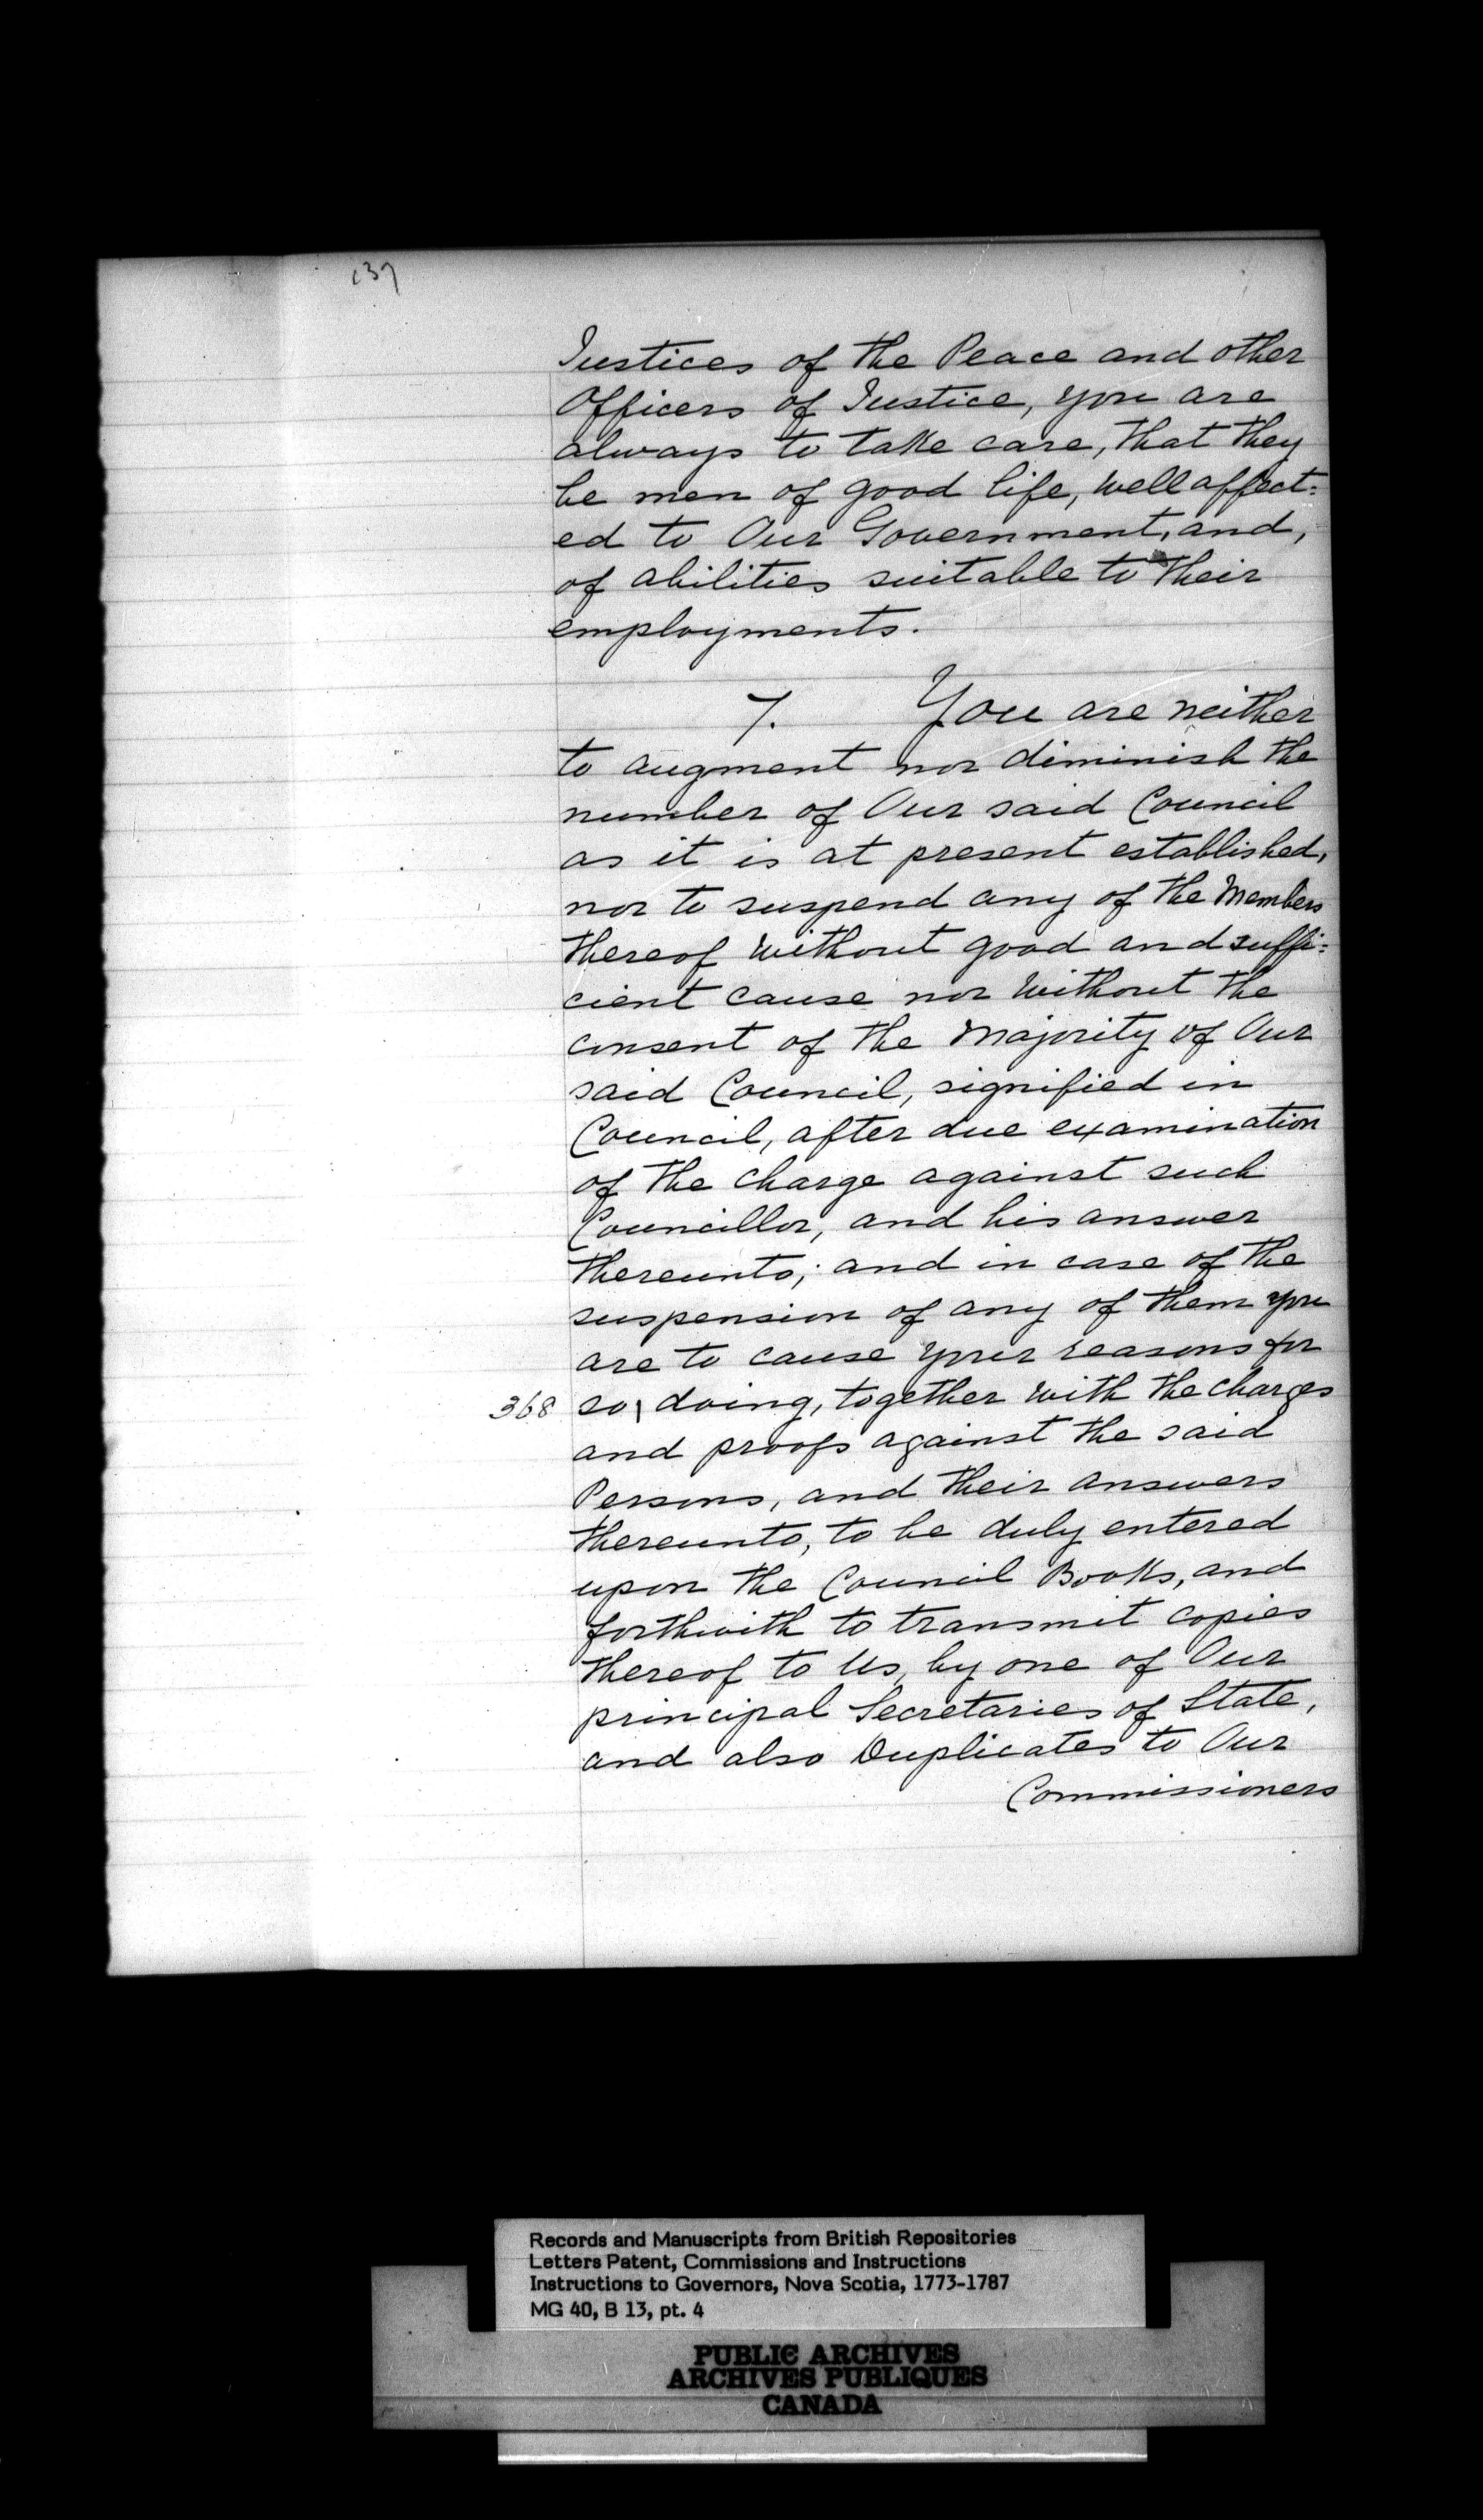 137
Justices of the Peace and other
Officers of Justice, you are
always to take care, that they
be men of good life, well affect=
ed to Our Government, and,
of abilities suitable to their
employments.
7. You are neither
to augment nor diminish the
number of Our said Council
as it is at present established,
nor to suspend any of the Members
thereof without good and suffi=
cient cause nor without the
consent of the Majority of Our
said Council, signified in
Council, after due examination
of the charge against such
Councillor, and his answer
thereunto; and in case of the
suspension of any of them you
are to cause your reasons for
368 so\ doing, together with the charges
and proofs against the said
Persons, and their answers
thereunto, to be duly entered
upon the Council Books, and
forthwith to transmit copies
thereof to Us, by one of Our
principal Secretaries of State,
and also Duplicates to Our
Commissioners
Records and Manuscripts from British Repositories
Letters Patent, Commissions and Instructions
Instructions to Governors, Nova Scotia, 1773-1787
MG 40, B 13, pt. 4
PUBLIC ARCHIVES
ARCHIVES PUBLIQUES
CANADA